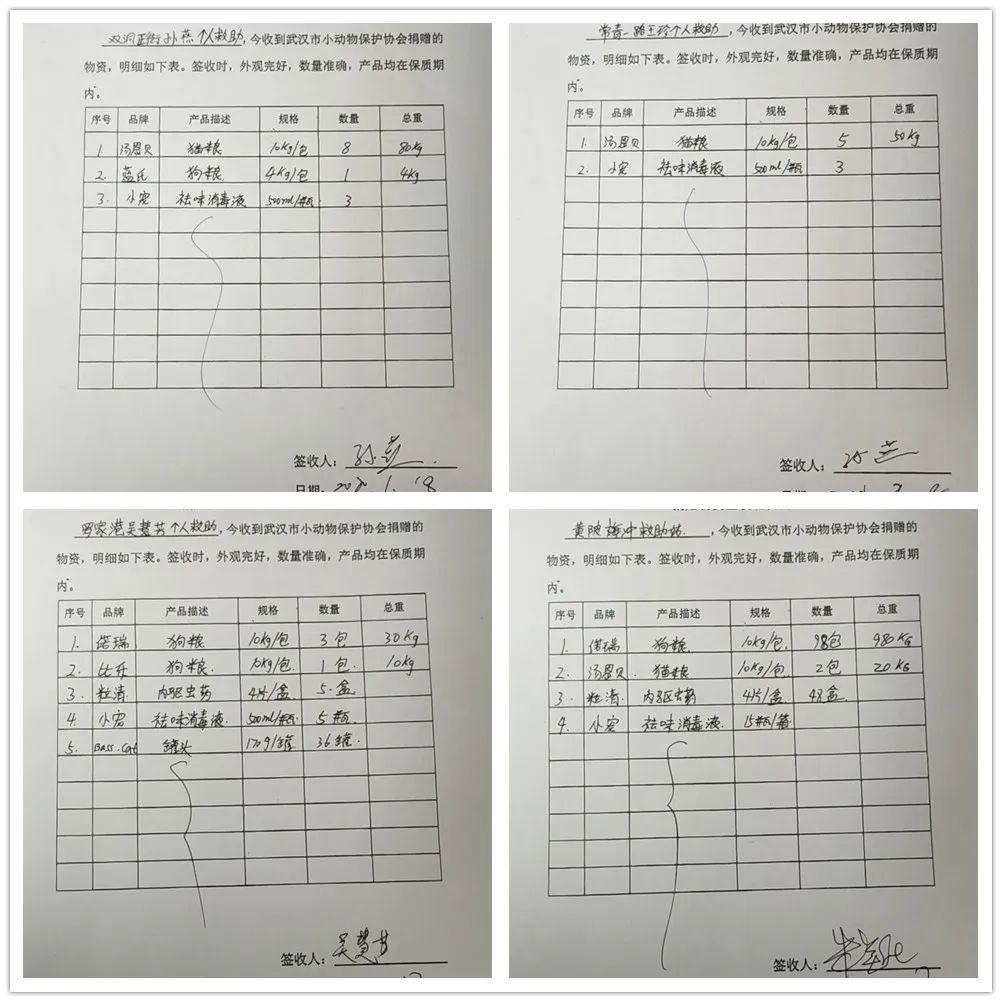 双洞正街孙燕个人救助,今收到武汉市小动物保护协会捐赠的
物资,明细如下表。签收时,外观完好,数量准确,产品均在保质期
内。
序号 品牌 产品描述 规格 数量 总重
1. 汤恩贝 猫粮 10kg/包 8 80kg
2. 蓝氏 狗粮 4kg/包 1 4kg
3. 小宠 祛味消毒液 500ml/瓶 3
签收人: 孙燕
日期:
常青一路王玲个人救助,今收到武汉市小动物保护协会捐赠的
物资,明细如下表。签收时,外观完好,数量准确,产品均在保质期
内。
序号 品牌 产品描述 规格 数量 总重
1. 汤恩贝 猫粮 10kg/包 5 50kg
2. 小宠 祛味消毒液 500ml/瓶 3
签收人:
罗家港吴慧芳个人救助,今收到武汉市小动物保护协会捐赠的
物资,明细如下表。签收时,外观完好,数量准确,产品均在保质期
内。
序号 品牌 产品描述 规格 数量 总重
1. 诺瑞 狗粮 10kg/包 3包 30Kg
2. 比乐 狗粮. 10kg/包. 1包. 10kg
3. 粒清 内驱虫药 4片/盒 5.盒
4. 小宠 祛味消毒液. 500ml/瓶 5瓶.
5. Bass.Cat 罐头 170g/罐 36罐.
签收人: 吴慧芳
黄陂 救助站. ,今收到武汉市小动物保护协会捐赠的
物资,明细如下表。签收时,外观完好,数量准确,产品均在保质期
内。
序号 品牌 产品描述 规格 数量 总重
1. 诺瑞 狗粮. 10kg/包. 98包 980KG
2. 汤恩贝 猫粮. 10kg/包. 2包 20KG
3. 粒清 内驱虫药 4片/盒 48盒.
4. 小宠 祛味消毒液. 15瓶/箱
签收人: